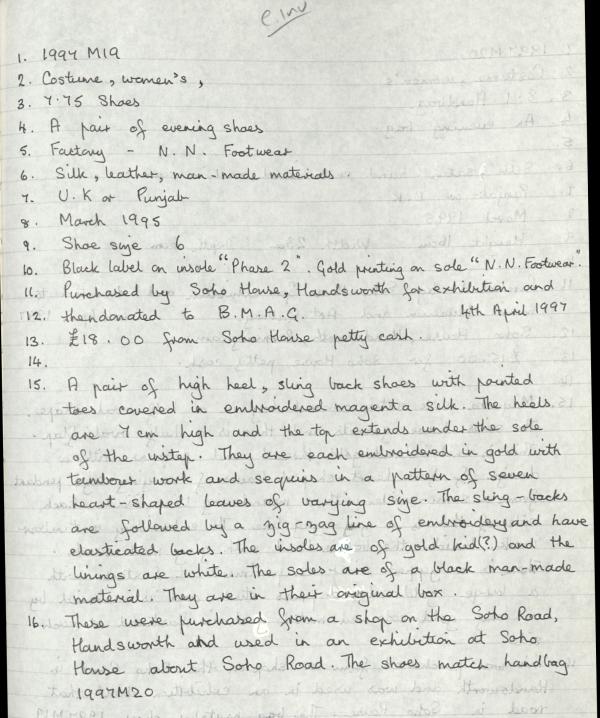 e.Inv
1. 1997 M19
2. Costume, women's,
3. 7.75 Shoes
4. A pair of evening shoes
5. Factory - N.N. Footwear
6. Silk, leather, man-made materials.
7. U.K or Punjab
8. March 1995
9. Shoe size 6
10. Black label on insole "Phase 2". Gold printing on sole "N.N. Footwear".
11. Purchased by Soho House, Handsworth for exhibition and
12. then donated to B.M.A.G. 4th April 1997
13. £18.00 from Soho House petty cash.
14.
15. A pair of high heel, sling back shoes with pointed
toes covered in embroidered magenta silk. The heels
are 7 cm high and the top extends under the sole
of the instep. They are each embroidered in gold with
tambour work and sequins in a pattern of seven
heart-shaped leaves of varying size. The sling-backs
are followed by a zig-zag line of embroidery and have
elasticated backs. The insoles are of gold kid(?) and the
linings are white. The soles are of a black man-made
material. They are in their original box.
16. These were purchased from a shop on the Soho Road,
Handsworth and used in an exhibition at Soho
House about Soho Road. The shoes match handbag
1997M20